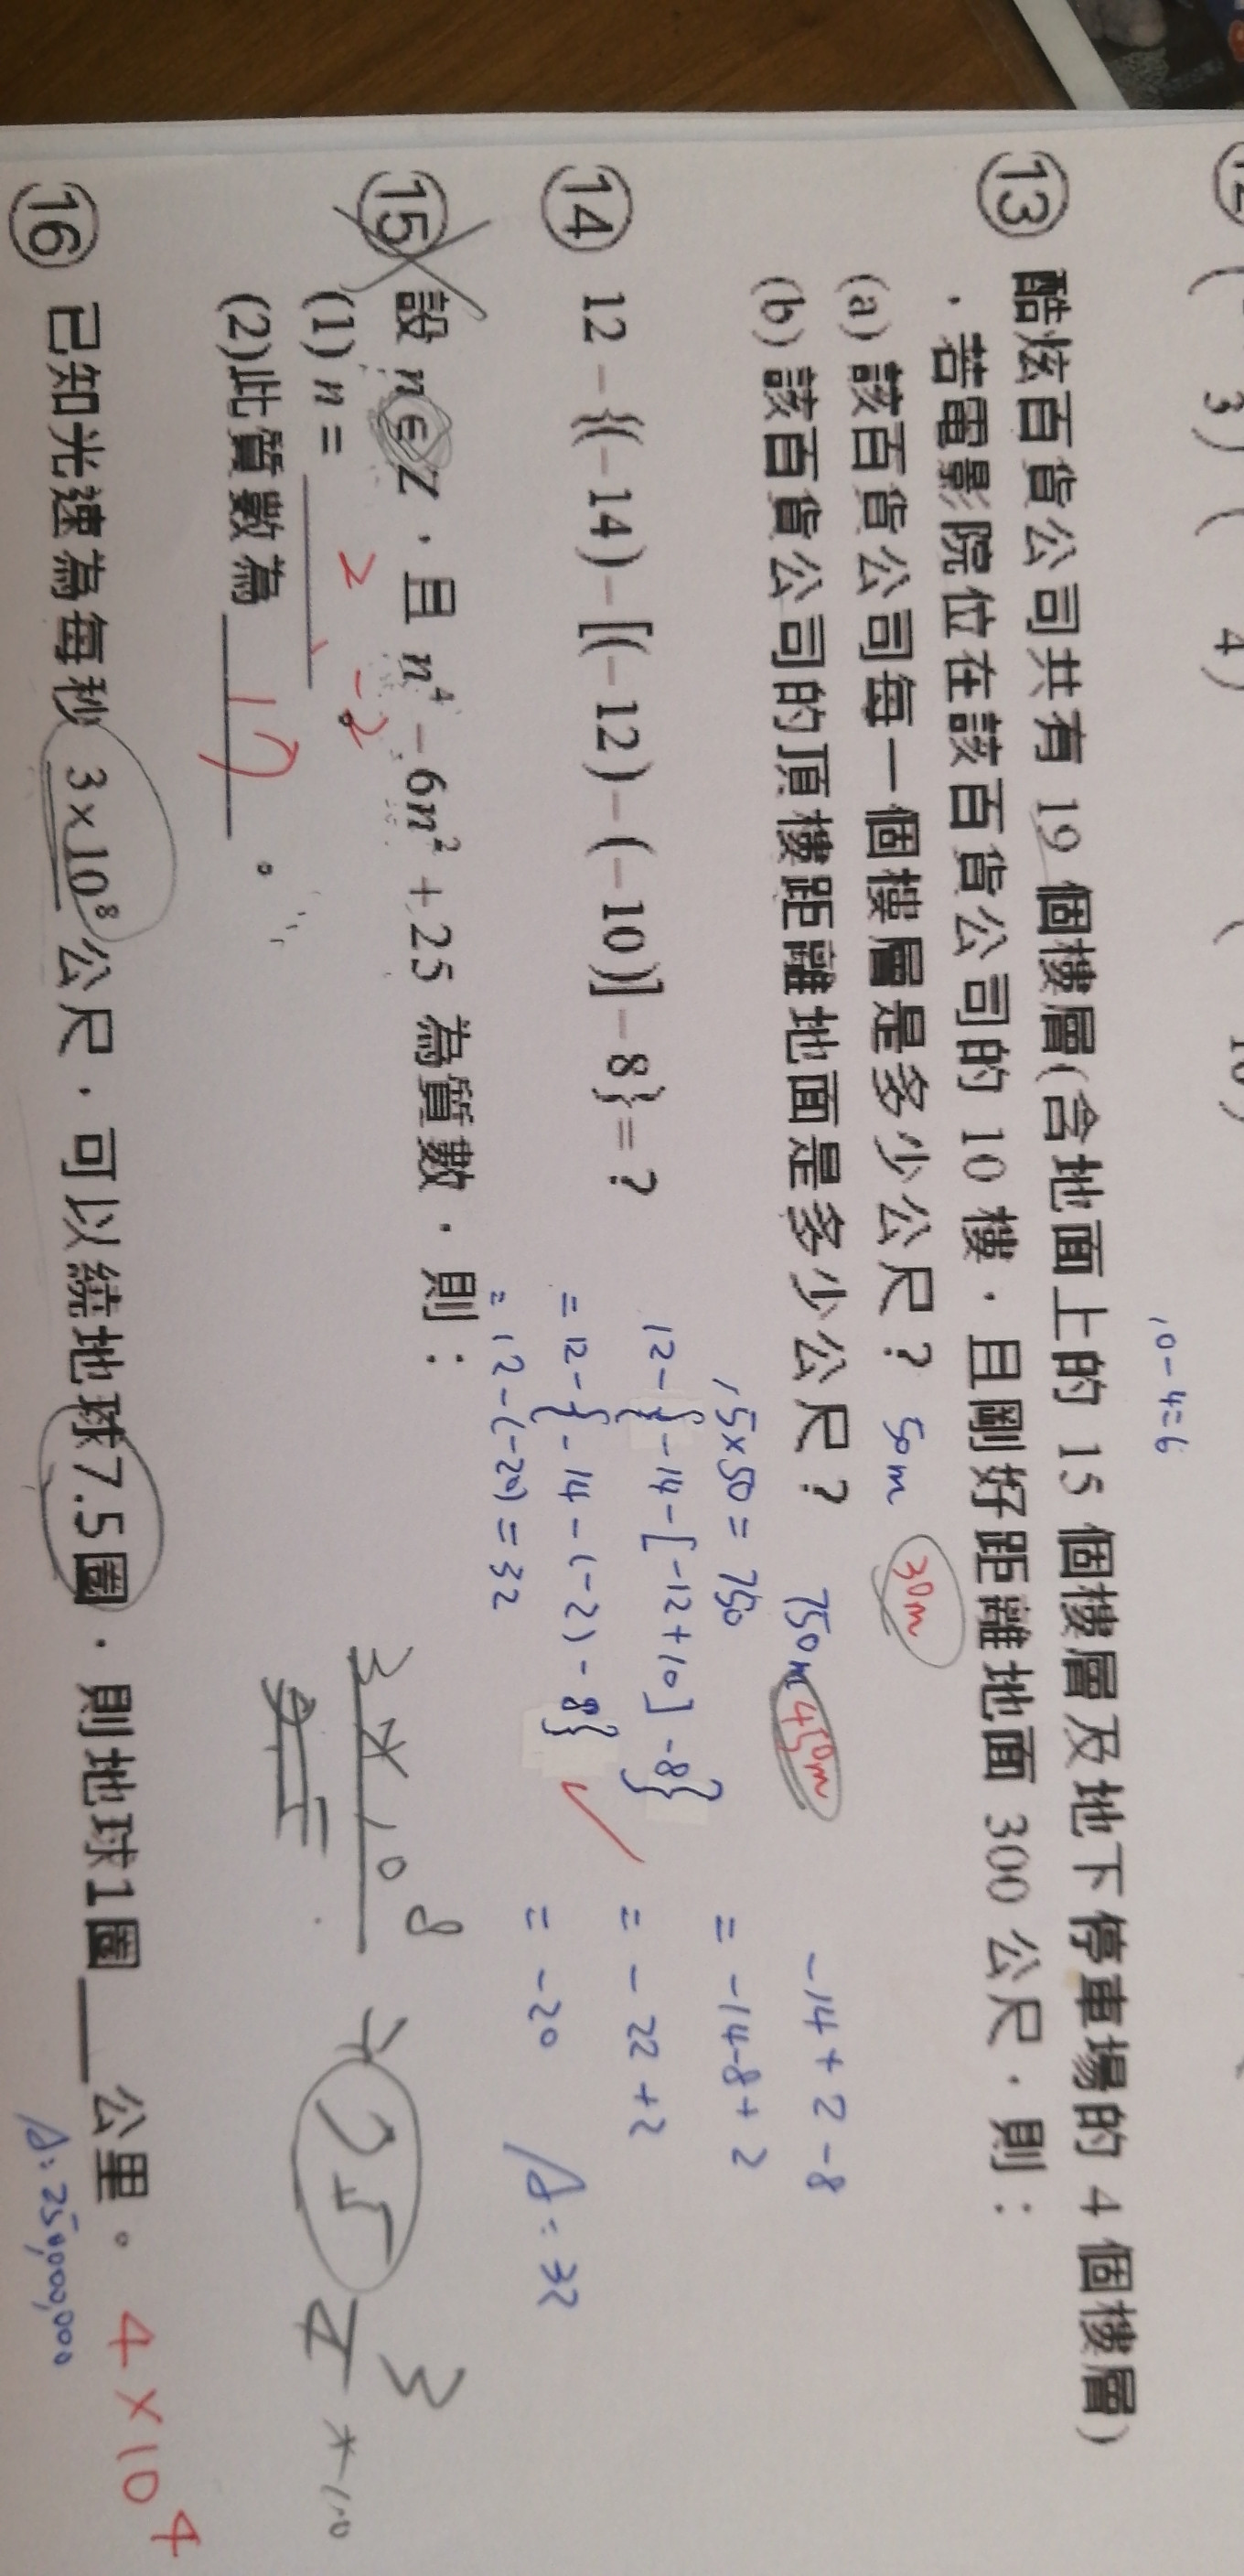 3) ( 4) (
10-4=6
⑬ 酷炫百貨公司共有 19 個樓層(含地面上的 15 個樓層及地下停車場的 4 個樓層)
，若電影院位在該百貨公司的 10 樓，且剛好距離地面 300 公尺，則：
(a) 該百貨公司每一個樓層是多少公尺？ 50m 30m
(b) 該百貨公司的頂樓距離地面是多少公尺？ 750m 450m
15×50=750
⑭ 12－{(－14)－[(－12)－(－10)]－8}=？
12-{-14-[-12+10]-8}
=12-{-14-(-2)-8}
=12-(-20)=32
-14+2-8
=-14-8+2
=-22+2
=-20
A:32
⑮ 設 n∈Z，且 n⁴－6n²+25 為質數，則：
(1) n= 2、-2
(2)此質數為 17 。
3×10⁸
⑯ 已知光速為每秒 3×10⁸公尺，可以繞地球7.5圈，則地球1圈___公里。 4×10⁴
A:250,000,000